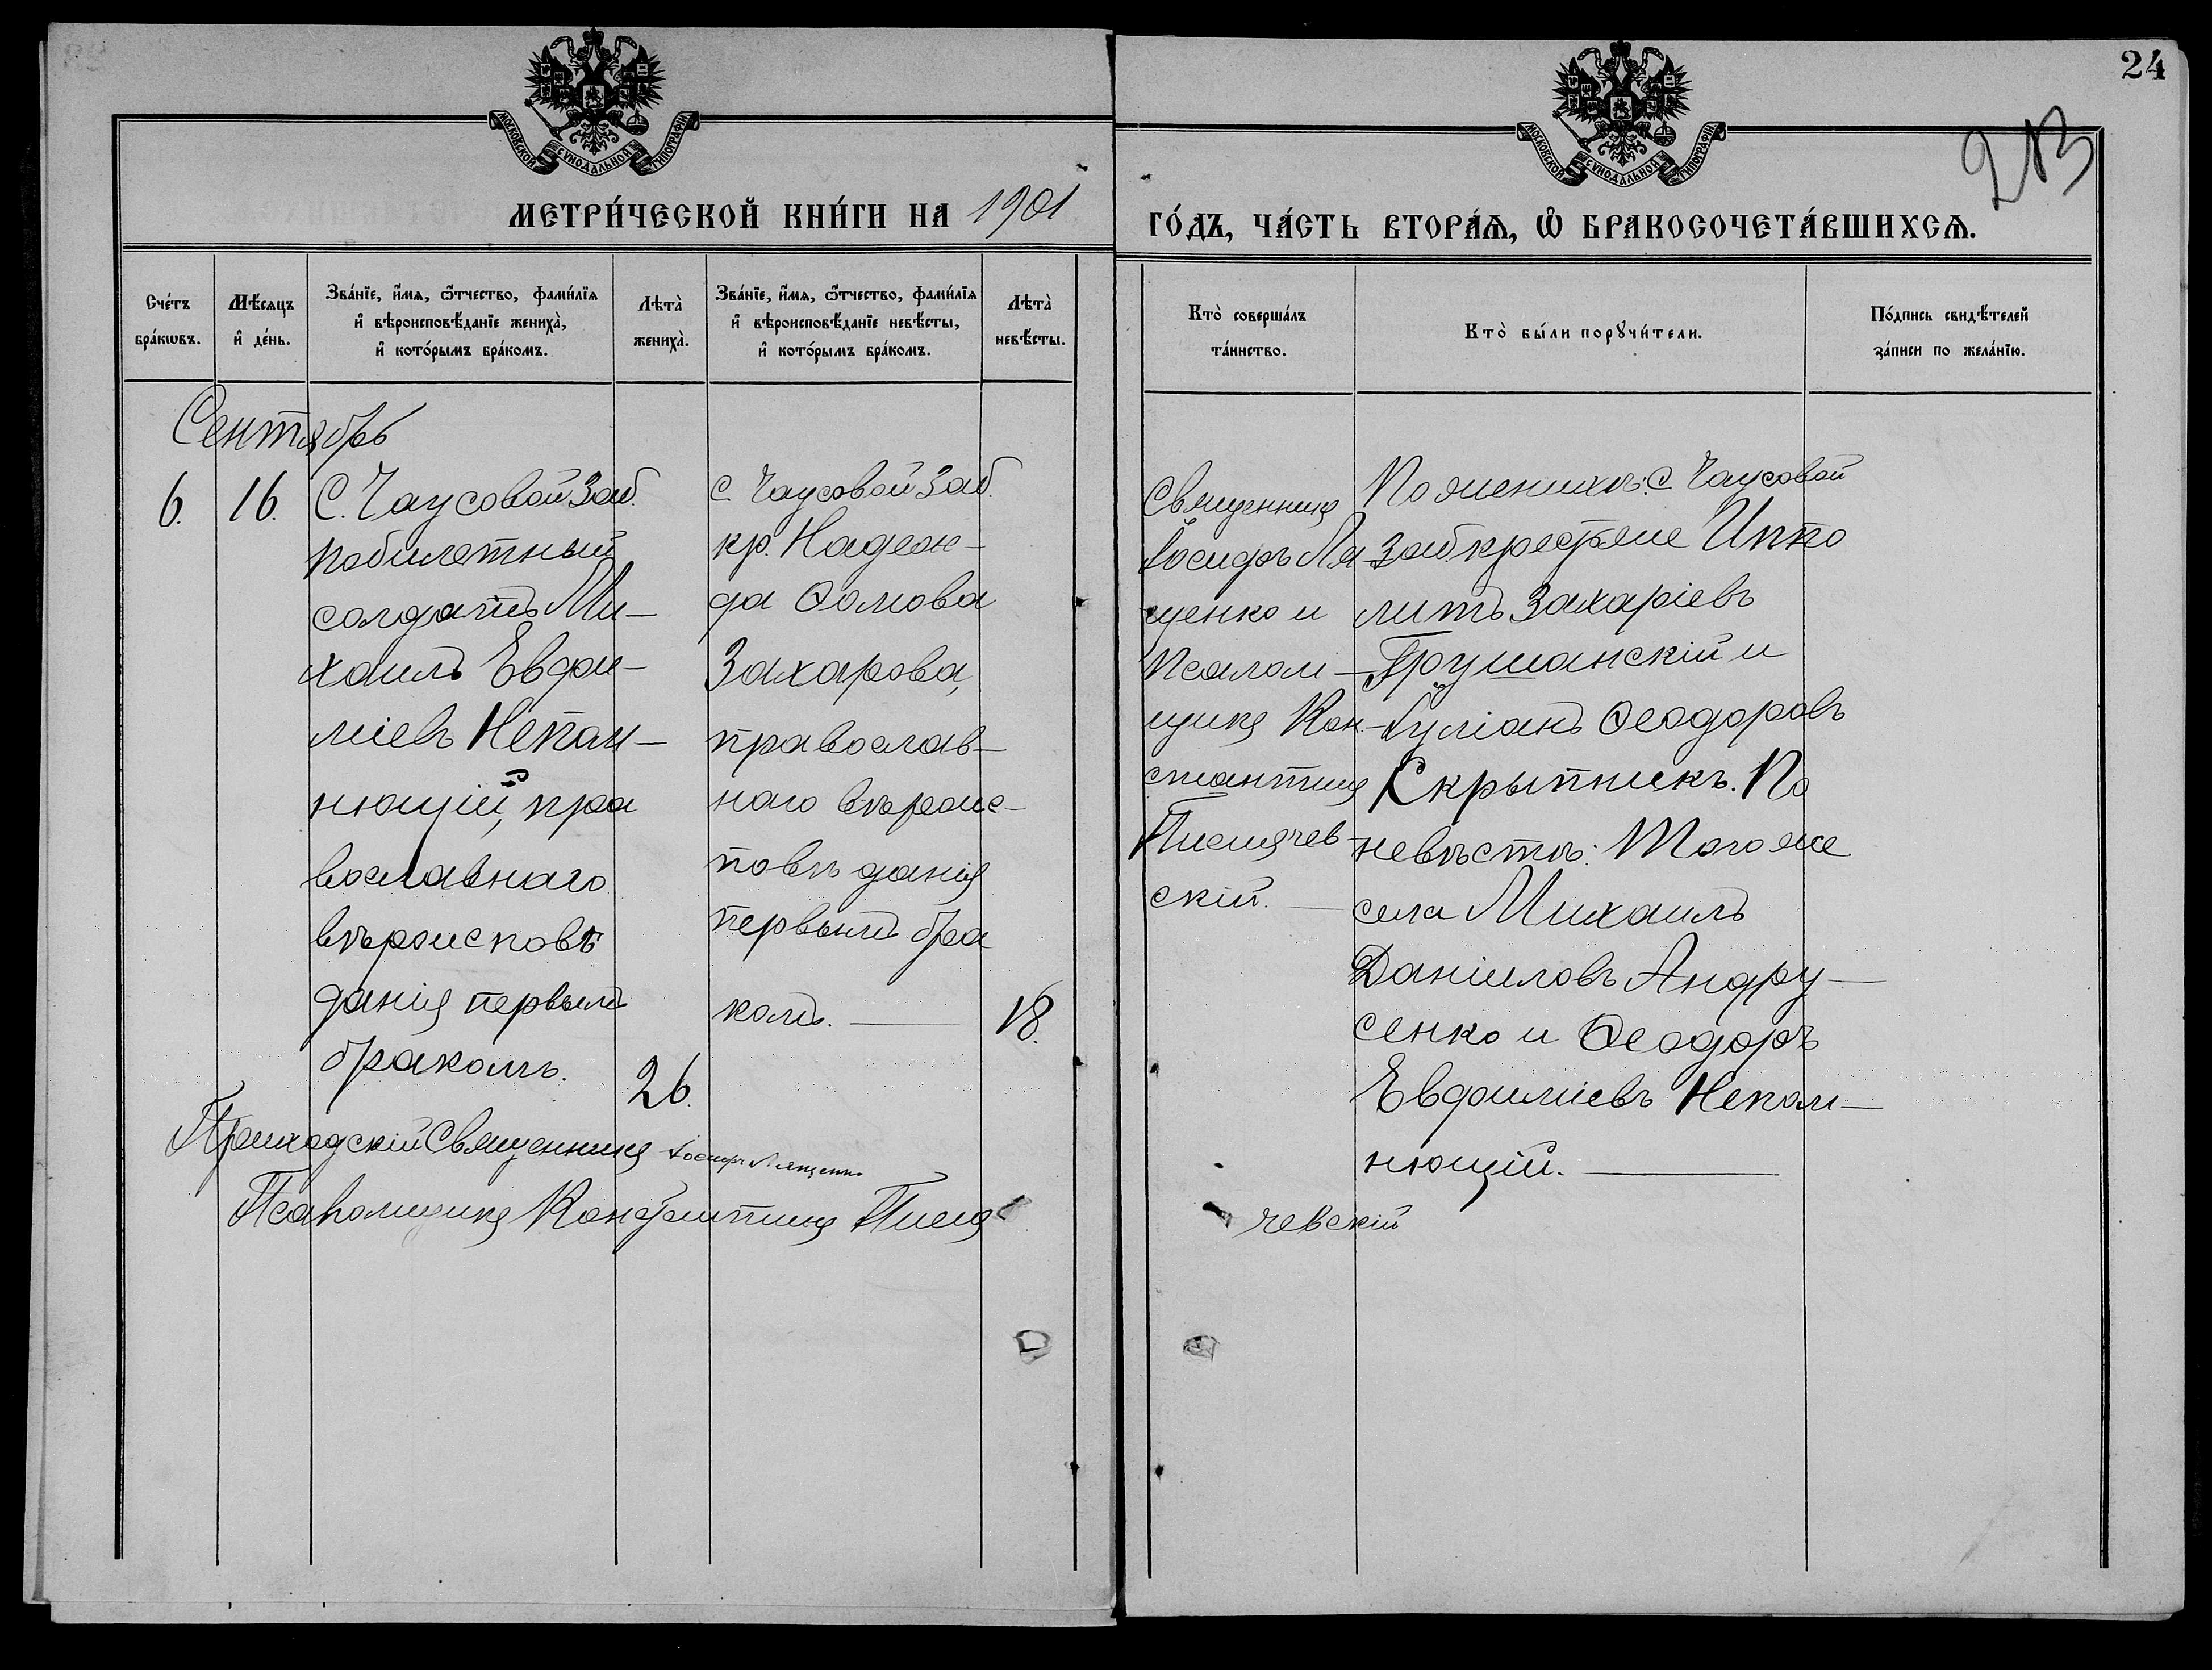 24
213
МОСКОВСКОЙ СѴНОДАЛЬНОЙ ТИПОГРАФІИ
МОСКОВСКОЙ СѴНОДАЛЬНОЙ ТИПОГРАФІИ
МЕТРИ́ЧЕСКОЙ КНИ́ГИ НА 1901
ГО́ДЪ, ЧА́СТЬ ВТОРА́Ѧ, Ѽ БРАКОСОЧЕТА́ВШИХСѦ.
Сче́тъ
бра́кѡвъ.
Мѣ́сяцъ
и҆ де́нь.
Зва́нїе, и҆́мѧ, ѻ҆́тчество, фами́лїѧ
и҆ вѣроисповѣ́данїе жениха̀,
и҆ кото́рымъ бра́комъ.
Лѣта̀
жениха̀.
Зва́нїе, и҆́мѧ, ѻ҆́тчество, фами́лїѧ
и҆ вѣроисповѣ́данїе невѣ́сты,
и҆ кото́рымъ бра́комъ.
Лѣта̀
невѣ́сты.
Кто̀ соверша́лъ
та́инство.
Кто̀ бы́ли порꙋчи́тели.
По́дпись свидѣ́телей
за́писи по жела́нїю.
Сентябрь
6.
16.
С. Чаусовой Заб.
побилетный
солдатъ Ми-
хаилъ Евфи-
міевъ Непом-
нющій, пра
вославнаго
вѣроисповѣ
данія первымъ
бракомъ.
26.
с. Чаусовой Заб.
кр. Надеж-
да Ѳомова
Захарова,
православ-
наго вѣроис-
повѣданія
первымъ бра
комъ.
18.
Священникъ
Іосифъ Ля
щенко и
Псалом-
щикъ Кон-
стантинъ
Писмячев
скій.
По женихѣ: с. Чаусовой
Заб крестьяне Иппо
литъ Захаріевъ
Грушанскій и
Іуліанъ Ѳеодоровъ
Скрыпникъ. По
невѣстѣ: Того же
села Михаилъ
Даніиловъ Андру-
сенко и Ѳеодоръ
Евфиміевъ Непом-
нющій.
Приходскій Священникъ Іосифъ Лященко
Псаломщикъ Константинъ Писмя
чевскій